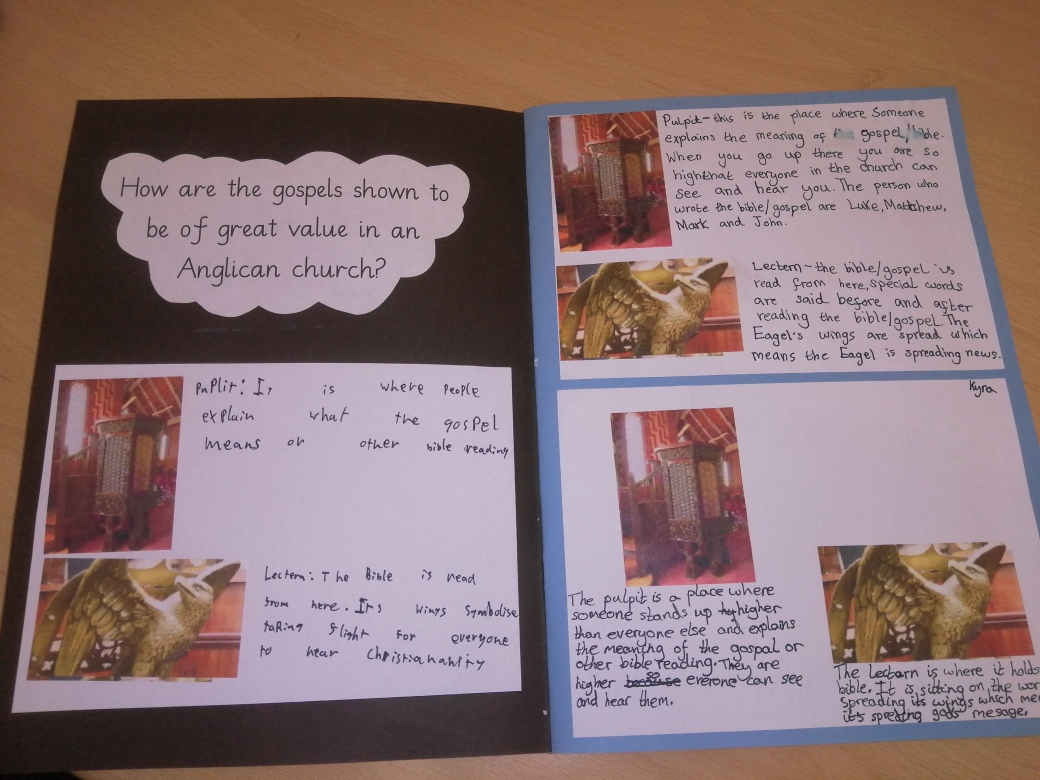 How are the gospels shown to
be of great value in an
Anglican church?
puplit: It is where people
explain what the gospel
means or other bible reading
Lectern: The Bible is read
from here. It's wings symbolise
taking flight for everyone
to hear Christiananity
Pulpit-this is the place where Someone
explains the meaning of the gospel/bible.
When you go up there you are so
highthat everyone in the church can
see and hear you. The person who
wrote the bible/gospel are Luke, Matthew,
Mark and John.
Lectern-the bible/gospel is
read from here, special words
are said before and after
reading the bible/gospel. The
Eagel's wings are spread which
means the Eagel is spreading news.
Kyra
The pulpit is a place where
someone stands up higher
than everyone else and explains
the meaning of the gospal or
other bible reading. They are
higher because so everone can see
and hear them.
The lectern is where it holds
bible. It is sitting on the
spreading its wings which
it's spreding gods mesage.